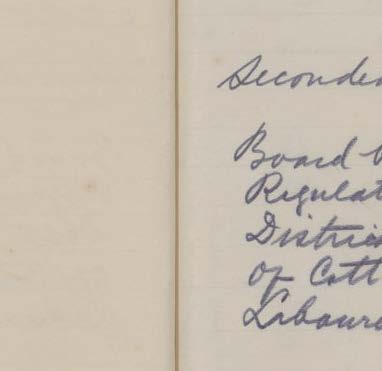 Seconded
Board
Regulat
Distric
of Cott
Laboure